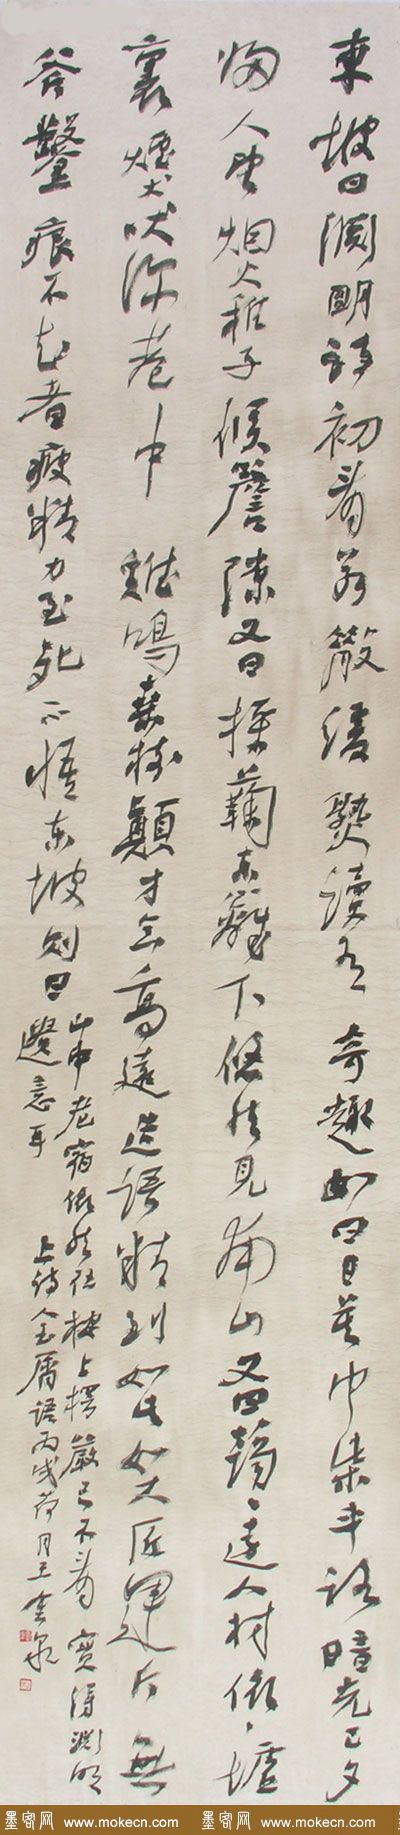 東坡曰淵明詩初看若散緩熟讀有奇趣如曰日莫巾柴車路暗光已夕
歸人望烟火稚子候簷隙又曰採菊東籬下悠然見南山又曰藹藹遠人村依依墟
裏煙犬吠深巷中雞鳴桑樹顛才意高遠造語精到如此如大匠運斤無
斧鑿痕不知者疲精力至死不悟東坡則曰
山中老宿依然在案上楞嚴已不看實得淵明
遺意耳 上詩人玉屑語丙戌荷月王金泉
墨客网 www.mokecn.com 墨客网 www.mokecn.com